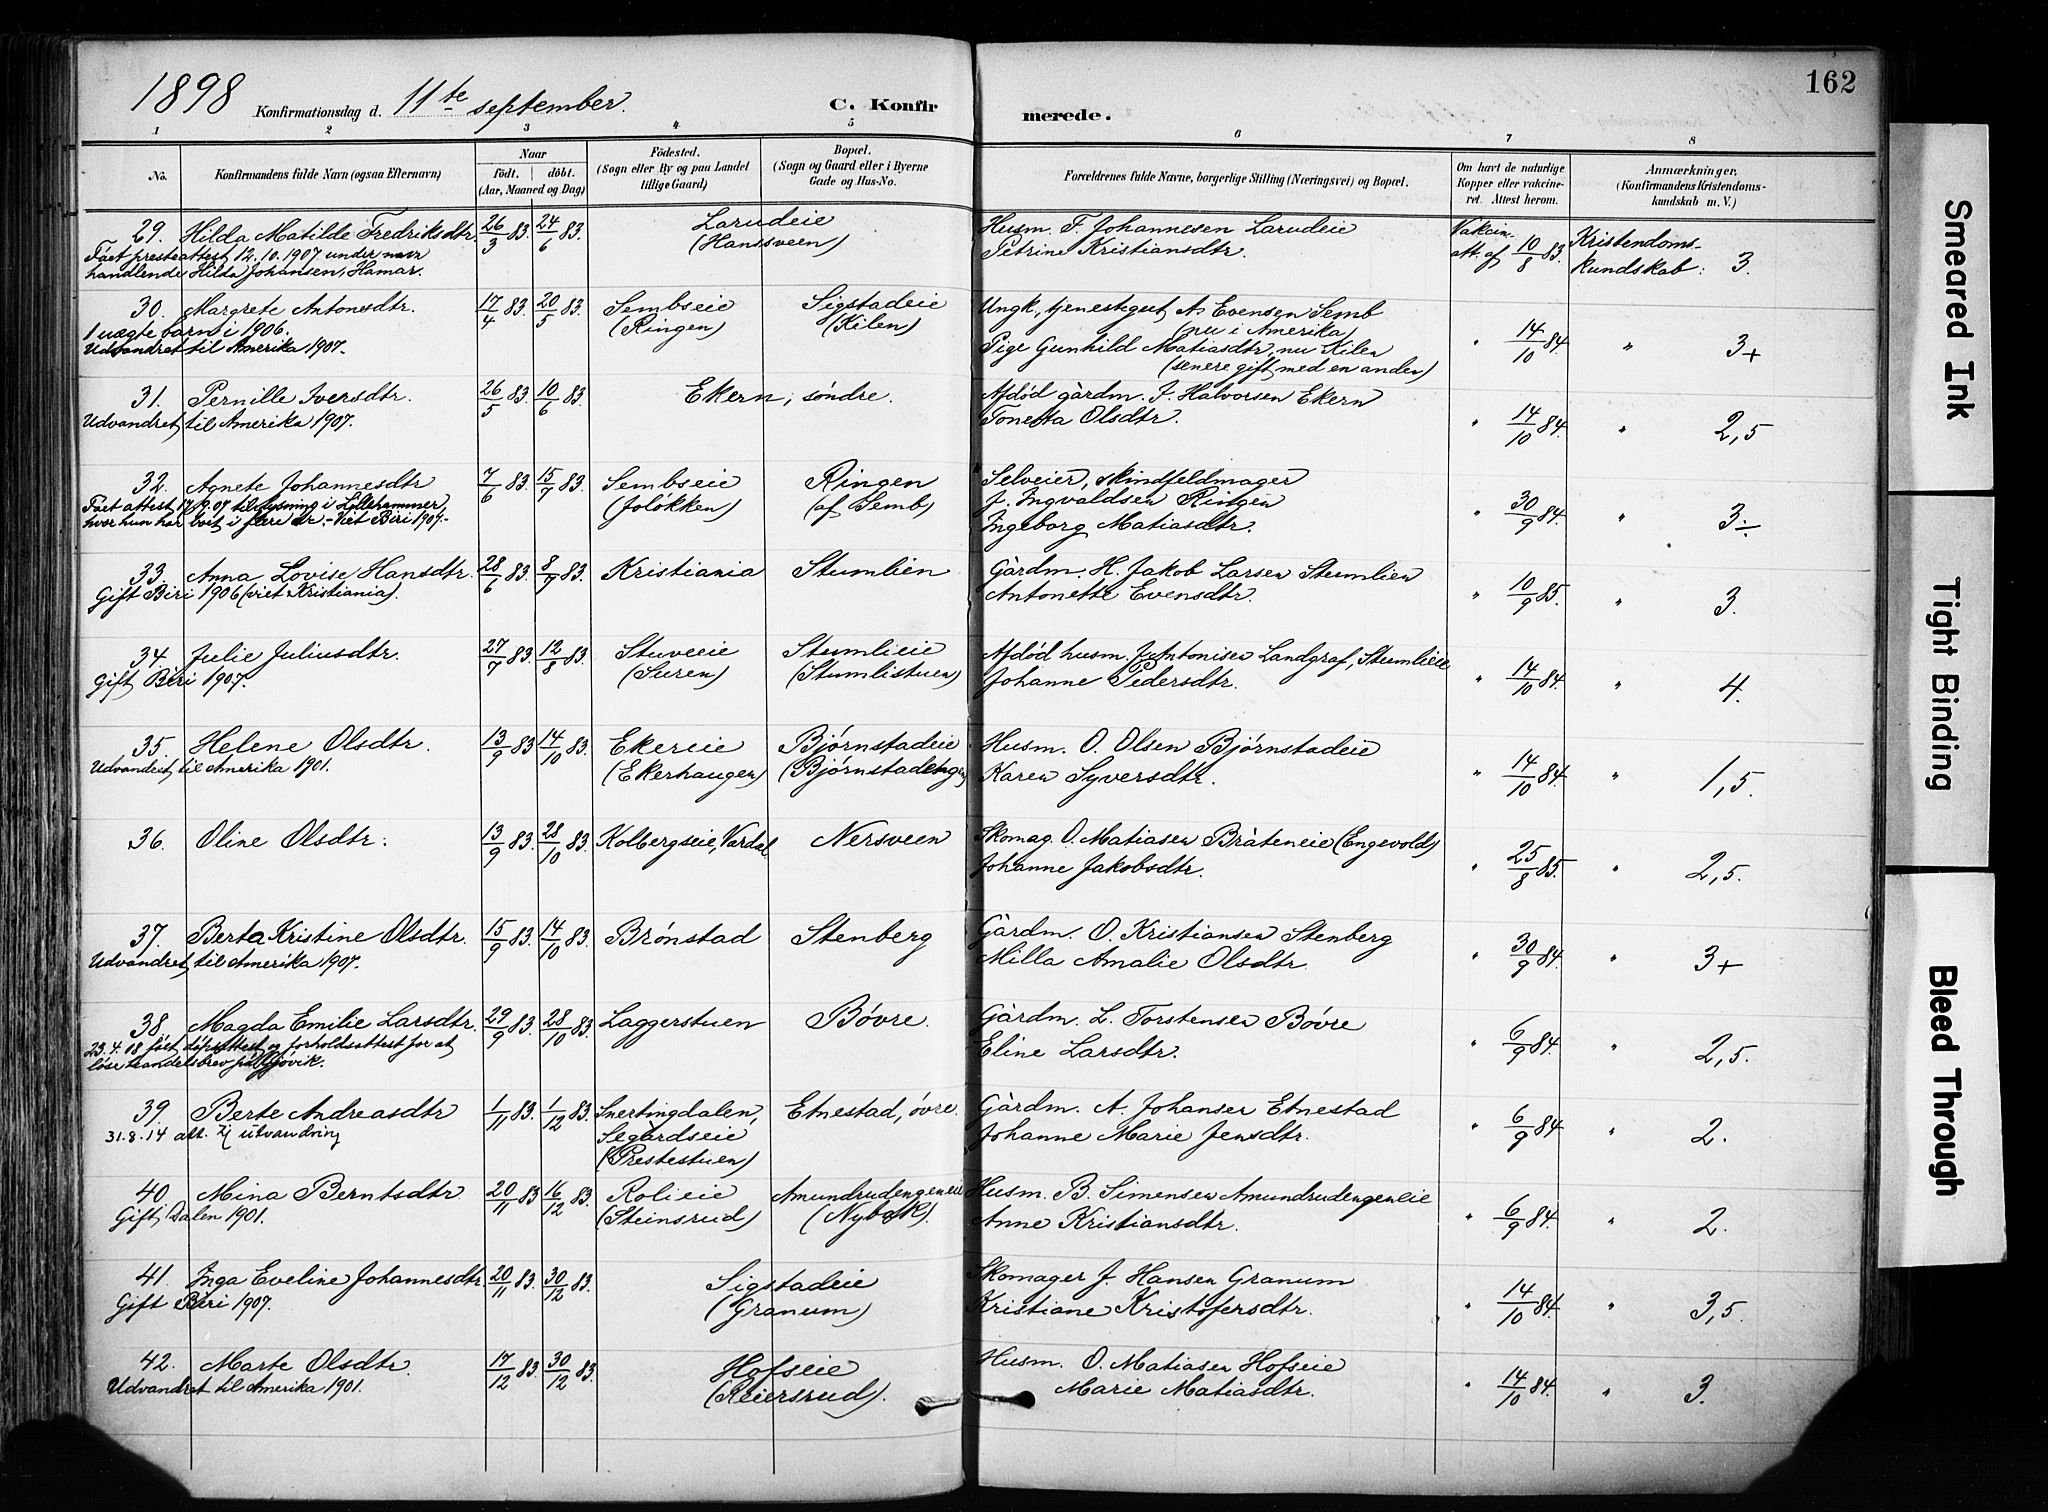 1898 Konfirmationsdag d. 11te september. C. Konfirmerede. 162
1 2 3 4 5 6 7 8
No. Konfirmandens fulde Navn (ogsaa Efternavn) Naar født. døbt. (Aar, Maaned og Dag) Fødested. (Sogn eller By og paa Landet tillige Gaard) Bopæl. (Sogn og Gaard eller i Byerne Gade og Hus-No. Forældrenes fulde Navne, borgerlige Stilling (Næringsvei) og Bopæl. Om havt de naturlige Kopper eller vakcineret. Attest herom. Anmærkninger, (Konfirmandens Kristendomskundskab m. V.)
29. Hilda Matilde Fredriksdtr. 26/3 83. 24/6 83. Larudeie Husm. F. Johannesen Larudeie Vakcin- Kristendoms-
Fået presteattest 12.10.1907 under navn (Hanssveen) Petrine Kristiansdtr. att. af 10/8 83. kundskab: 3.
handlende Hilda Johansen, Hamar.
30. Margrete Antonsdtr. 17/4 83. 20/5 83. Sembseie Sigstadeie Ungk., tjenestegut A. Evensen Semb
1 uægte barn i 1906. (Ringen) (Kilen) (nu i Amerika) " 14/10 84. " 3+
Udvandret til Amerika 1907.- Pige Gunhild Matiasdtr, nu Kilen
(senere gift med en anden)
31. Pernille Iversdtr. 26/5 83. 10/6 83. Ekern, søndre. Afdød gårdm. I. Halvorsen Ekern
Udvandret til Amerika 1907. Tonetta Olsdtr. " 14/10 84. " 2,5
32. Agnete Johannesdtr 7/6 83. 15/7 83. Sembseie Ringen Selveier, skindfeldmager
Fået attest 17/9.07 til lysning i Lillehammer, (Joløkken) (af Semb) J. Ingvaldsen Ringen " 30/9 84. " 3÷
hvor hun har boit i flere år. - Viet Biri 1907.- Ingeborg Matiasdtr.
33. Anna Lovise Hansdtr. 28/6 83. 8/9 83. Kristiania Stumlien Gårdm. H. Jakob Larsen Stumlien
Gift Biri 1906 (viet Kristiania). Antonette Evensdtr. " 10/9 85. " 3.
34. Julie Juliusdtr. 27/7 83. 12/8 83. Stuveeie Stumlieie Afdød husm. J. Antonisen Landgraf, Stumlieie
Gift Biri 1907. (Suren) (Stumlistuen) Johanne Pedersdtr. " 14/10 84. " 4.
35. Helene Olsdtr. 13/9 83 14/10 83. Ekereie Bjørnstadeie Husm. O. Olsen Bjørnstadeie
Udvandret til Amerika 1901. (Ekerhaugen) (Bjørnstadengen) Karen Syversdtr. " 14/10 84. " 1,5.
36. Oline Olsdtr. 13/9 83. 28/10 83. Kolbergseie, Vardal Nersveen Skomag. O. Matiasen Bråteneie (Engevold)
Johanne Jakobsdtr. " 25/8 85. " 2,5.
37. Berta Kristine Olsdtr. 15/9 83. 14/10 83. Brønstad Stenberg Gårdm. O. Kristiansen Stenberg
Udvandret til Amerika 1907. Milla Amalie Olsdtr. " 30/9 84. " 3+
38. Magda Emilie Larsdtr. 29/9 83. 28/10 83. Laggerstuen Bøvre. Gårdm. L. Torstensen Bøvre
23.4.18 fået dåpsattest og forholdsattest for at Eline Larsdtr. " 6/9 84. " 2,5.
løse handelsbrev på Gjøvik.
39. Berte Andreasdtr 1/11 83. 1/12 83. Snertingdalen, Etnestad, øvre. Gårdm. A. Johansen Etnestad
31.8.14 att. til utvandring Segårdseie Johanne Marie Jensdtr. " 6/9 84. " 2.
(Prestestuen)
40. Mina Berntsdtr 20/11 83 16/12 83. Rolieie Amundrudengeneie Husm. B. Simensen Amundrudengeneie
Gift Dalen 1901. (Steinsrud) (Nybakk). Anne Kristiansdtr. " 6/9 84. " 2.
41. Inga Eveline Johannesdtr. 20/11 83. 30/12 83. Sigstadeie Skomager J. Hansen Granum
Gift Biri 1907. (Granum) Kristiane Kristofersdtr. " 14/10 84. " 3,5.
42. Marte Olsdtr. 17/12 83. 30/12 83. Hofseie Husm. O. Matiasen Hofseie
Udvandret til Amerika 1901. (Reiersrud). Marie Matiasdtr. " 14/10 84. " 3.
Smeared Ink
Tight Binding
Bleed Through